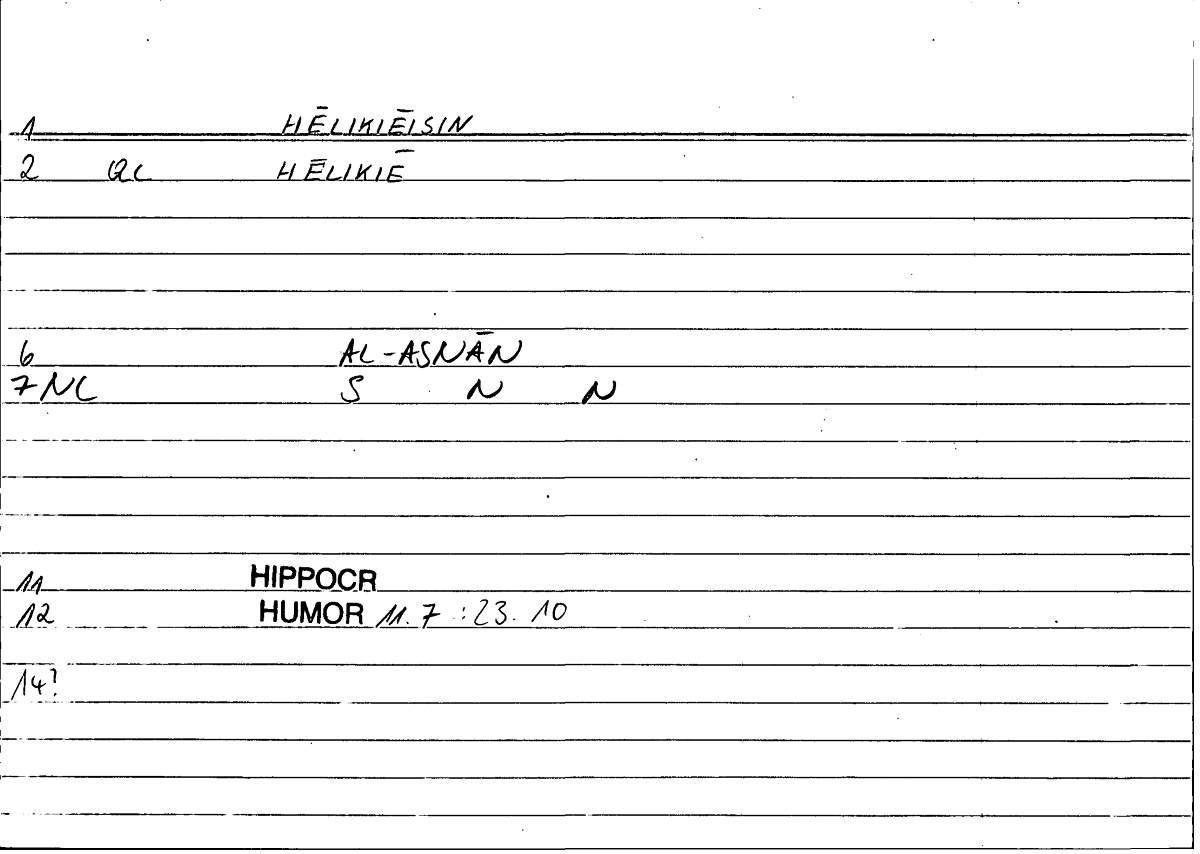 1 HĒLIKIĒISIN
2 QL HĒLIKIĒ
6 AL-ASNĀN
7 NL S N N
11 HIPPOCR
12 HUMOR 11.7 :23.10
14?